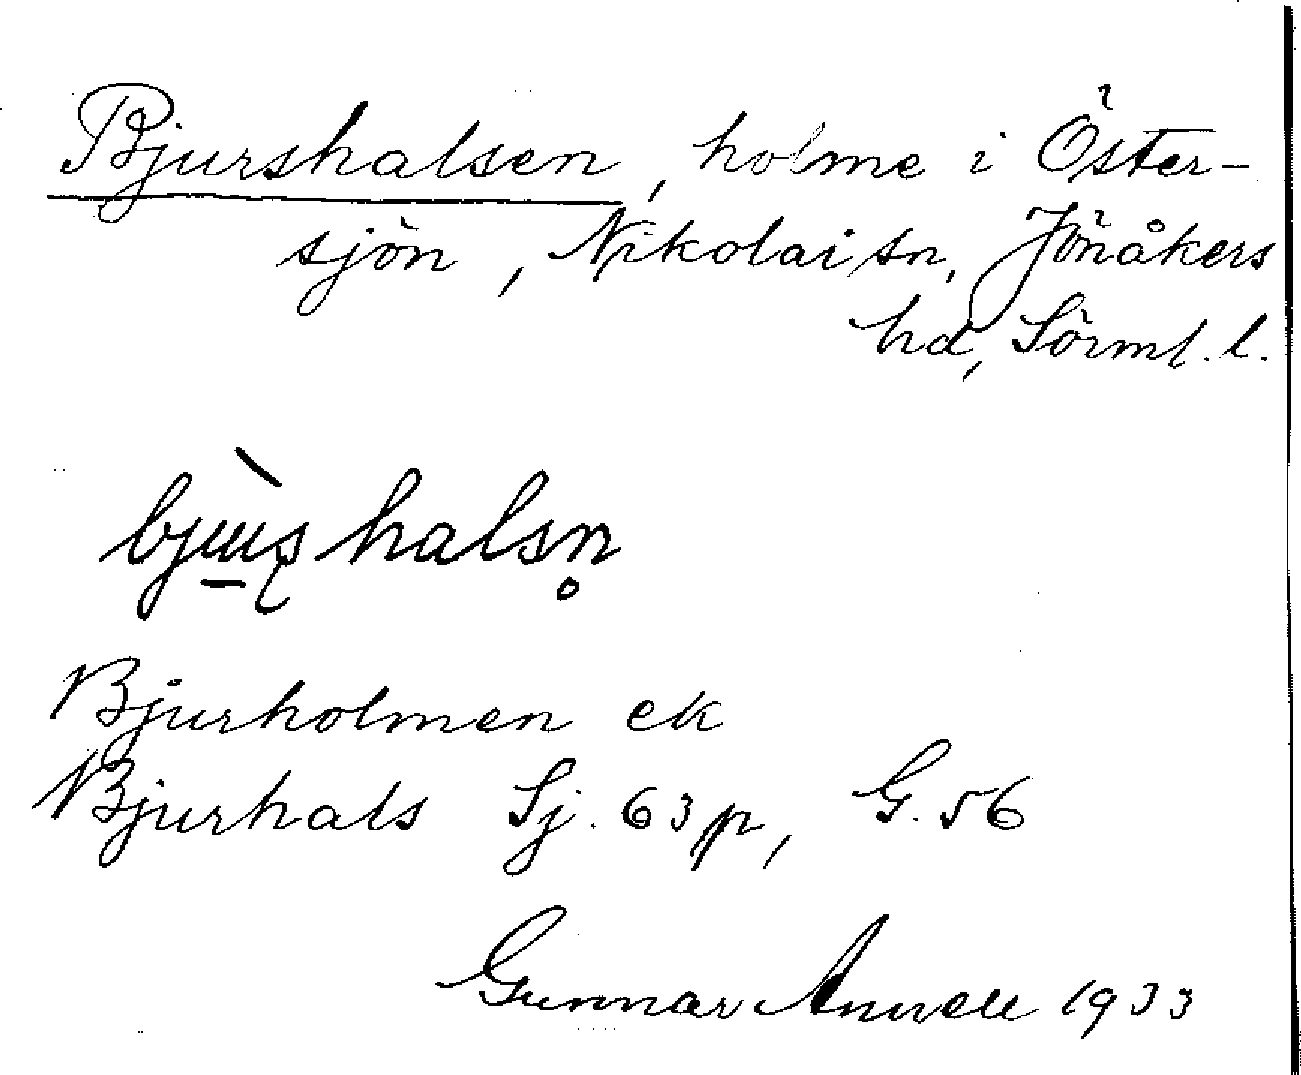 Bjurshalsen, holme i Öster-
sjön, Nikolai sn, Jönåkers
hd, Sörml. l.
Bjurholmen ek
Bjurhals Sj. 63 p, G. 56
Gunnar Anwell 1933